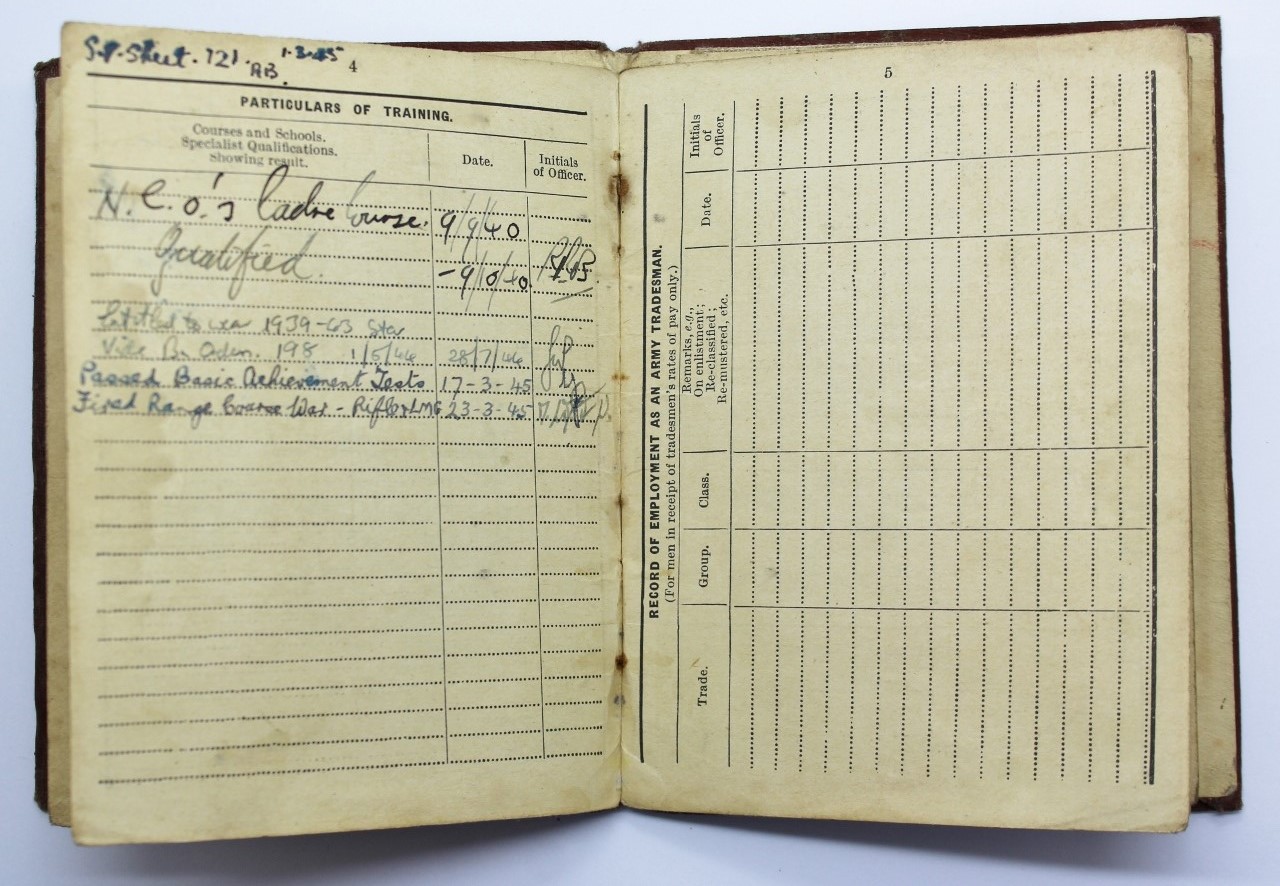 S.P. Sheet. 121. 1.3.45
RB.
4
PARTICULARS OF TRAINING.
Courses and Schools.
Specialist Qualifications.
Showing result.
Date.
Initials
of Officer.
N.C.O.'s Cadre Course. 9/9/40
Qualified. -9/10/40.
Entitled to wear 1939-43 Star
Vide Bn Orders. 198 1/5/44 28/7/44
Passed Basic Achievement Tests 17-3-45
Fired Range Course War - Rifle & LMG 23-3-45
5
RECORD OF EMPLOYMENT AS AN ARMY TRADESMAN.
(For men in receipt of tradesmen's rates of pay only.)
Trade.
Group.
Class.
Remarks, e.g.,
On enlistment;
Re-classified;
Re-mustered, etc.
Date.
Initials
of
Officer.